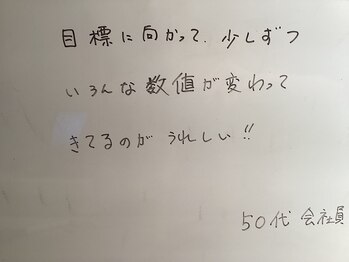 目標に向かって、少しずつ
いろんな数値が変わって
きてるのが うれしい!!
50代 会社員